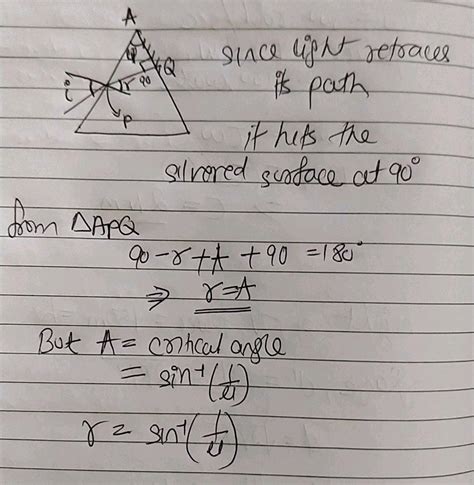 A
Q
90
i
r
P
since light retraces
its path
it hits the
silvered surface at 90°
from △APQ
90-r+A+90 = 180°
⇒ r=A
But A = critical angle
= sin⁻¹(1/μ)
r = sin⁻¹(1/μ)